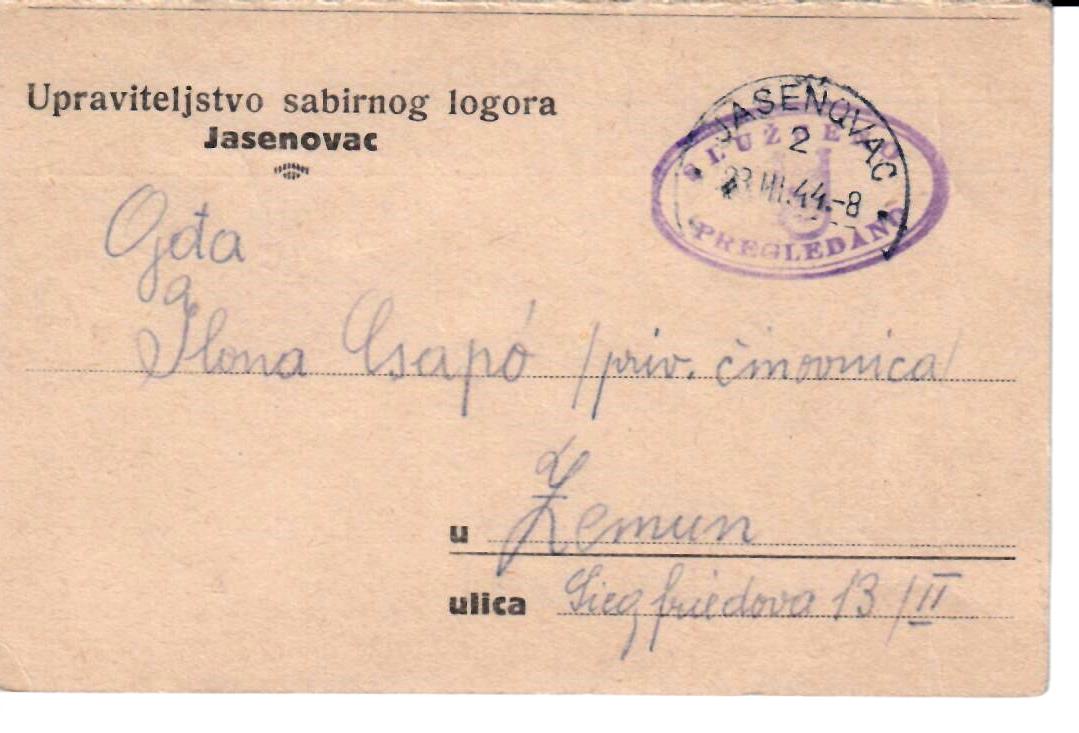 Upraviteljstvo sabirnog logora
Jasenovac
JASENOVAC
2
23.III.44.-8
SLUŽBENO
PREGLEDANO
Ogđa
Ilona Csapó /priv. činovnica/
u Zemun
ulica Siegfriedova 13/II